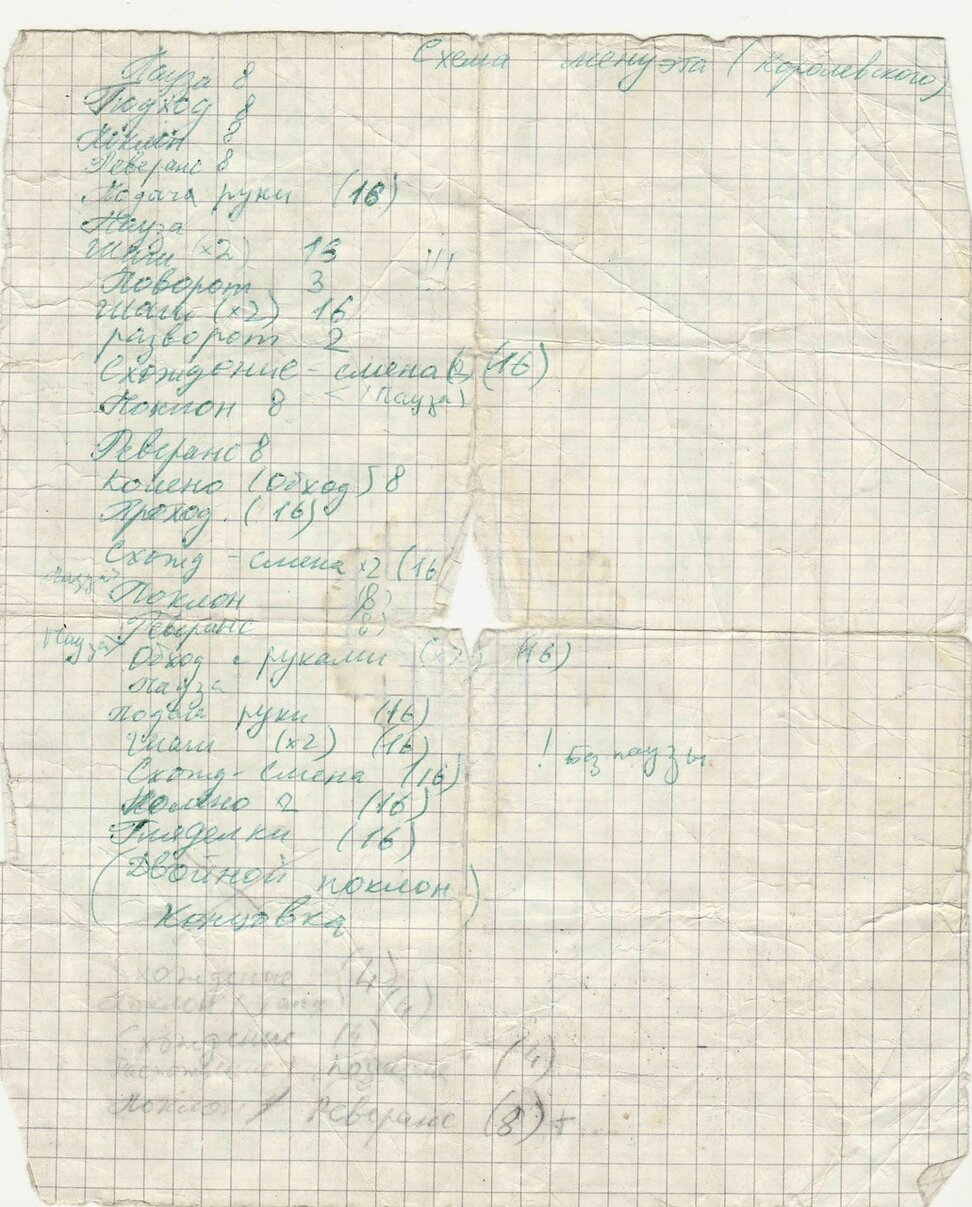 Схема менуэта (королевского)
Пауза 8
Подход 8
Поклон 8
Реверанс 8
Подача руки (16)
Пауза
Шаги (x2) 13 !!!
Поворот 3
Шаги (x2) 16
разворот 2
Схождение - смена (16)
Поклон 8 < (Пауза)
Реверанс 8
Колено (Обход) 8
Проход. (16)
Схожд - смена x2 (16
Пауза
Поклон (8)
Реверанс (8)
Пауза
Обход с руками (x2) (16)
Пауза
подача руки (16)
Шаги (x2) (16)
! Без паузы.
Схожд - смена (16)
Колено 2 (16)
Гляделки (16)
(Двойной поклон)
Концовка
Схождение (4)
Поклон (4)
Схождение
(4)
Поклон / Реверанс (8)